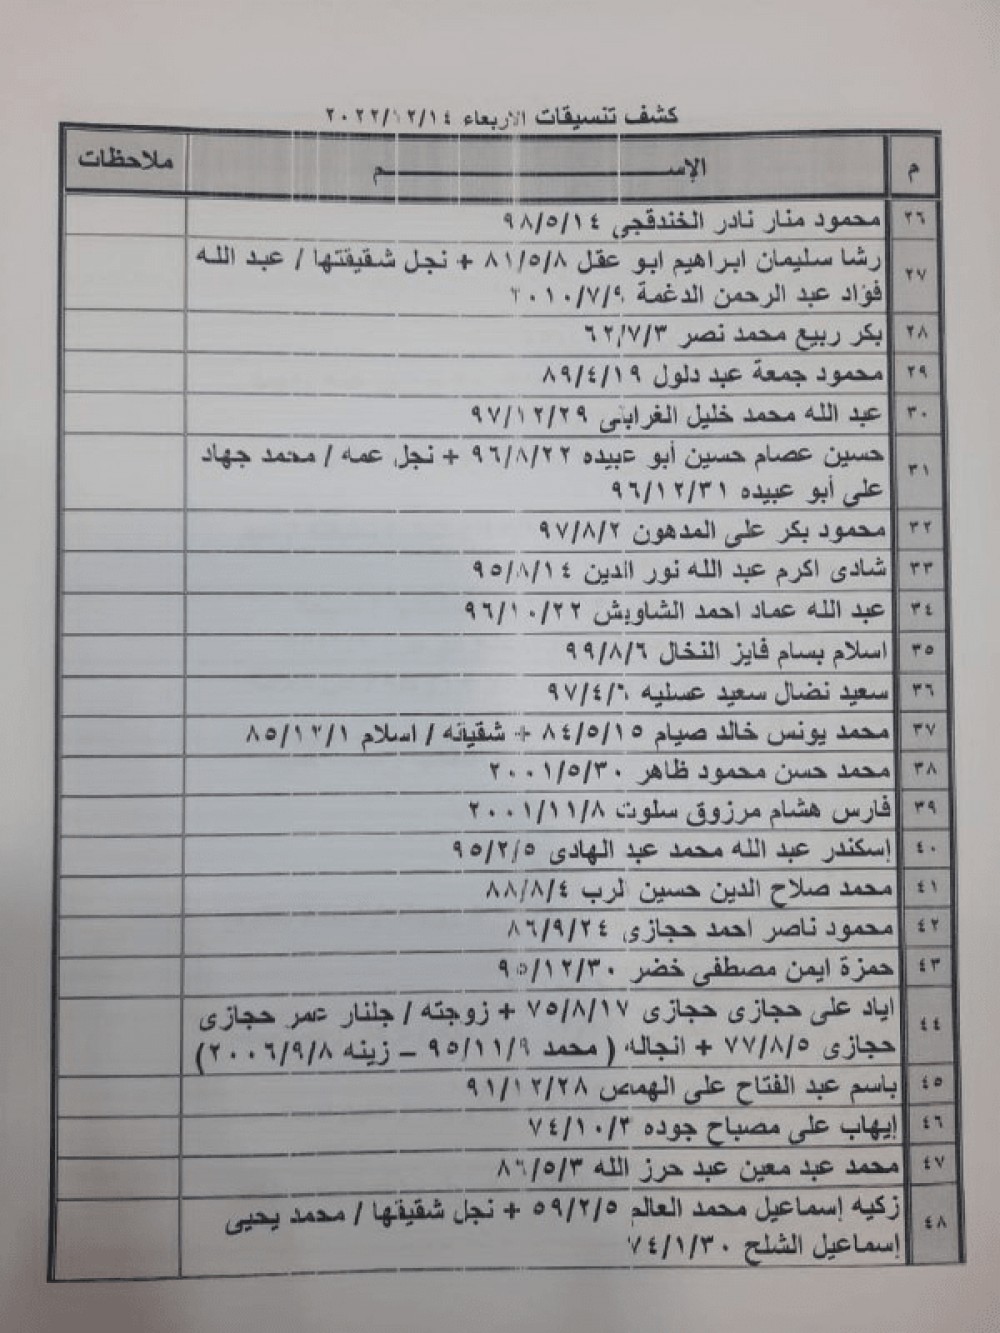 كشف تنسيقات الاربعاء ٢٠٢٢/١٢/١٤
م الإســـــــــم ملاحظات
٢٦ محمود منار نادر الخندقجى ٩٨/٥/١٤
٢٧ رشا سليمان ابراهيم ابو عقل ٨١/٥/٨ + نجل شقيقتها / عبد الله
فؤاد عبد الرحمن الدغمة ٢٠١٠/٧/٩
٢٨ بكر ربيع محمد نصر ٦٢/٧/٣
٢٩ محمود جمعة عبد دلول ٨٩/٤/١٩
٣٠ عبد الله محمد خليل الغرابلى ٩٧/١٢/٢٩
٣١ حسين عصام حسين أبو عبيده ٩٦/٨/٢٢ + نجل عمه / محمد جهاد
على أبو عبيده ٩٦/١٢/٣١
٣٢ محمود بكر على المدهون ٩٧/٨/٢
٣٣ شادى اكرم عبد الله نور الدين ٩٥/٨/١٤
٣٤ عبد الله عماد احمد الشاويش ٩٦/١٠/٢٢
٣٥ اسلام بسام فايز النخال ٩٩/٨/٦
٣٦ سعيد نضال سعيد عسليه ٩٧/٤/٦
٣٧ محمد يونس خالد صيام ٨٤/٥/١٥ + شقيقه / اسلام ٨٥/١٢/١
٣٨ محمد حسن محمود ظاهر ٢٠٠١/٥/٣٠
٣٩ فارس هشام مرزوق سلوت ٢٠٠١/١١/٨
٤٠ إسكندر عبد الله محمد عبد الهادى ٩٥/٢/٥
٤١ محمد صلاح الدين حسين لرب ٨٨/٨/٤
٤٢ محمود ناصر احمد حجازى ٨٦/٩/٢٤
٤٣ حمزة ايمن مصطفى خضر ٩٥/١٢/٣٠
٤٤ اياد على حجازى حجازى ٧٥/٨/١٧ + زوجته / جلنار عمر حجازى
حجازى ٧٧/٨/٥ + انجاله ( محمد ٩٥/١١/٩ – زينه ٢٠٠٦/٩/٨)
٤٥ باسم عبد الفتاح على الهمص ٩١/١٢/٢٨
٤٦ إيهاب على مصباح جوده ٧٤/١٠/٣
٤٧ محمد عبد معين عبد حرز الله ٨٦/٥/٣
٤٨ زكيه إسماعيل محمد العالم ٥٩/٢/٥ + نجل شقيقها / محمد يحيى
إسماعيل الشلح ٧٤/١/٣٠